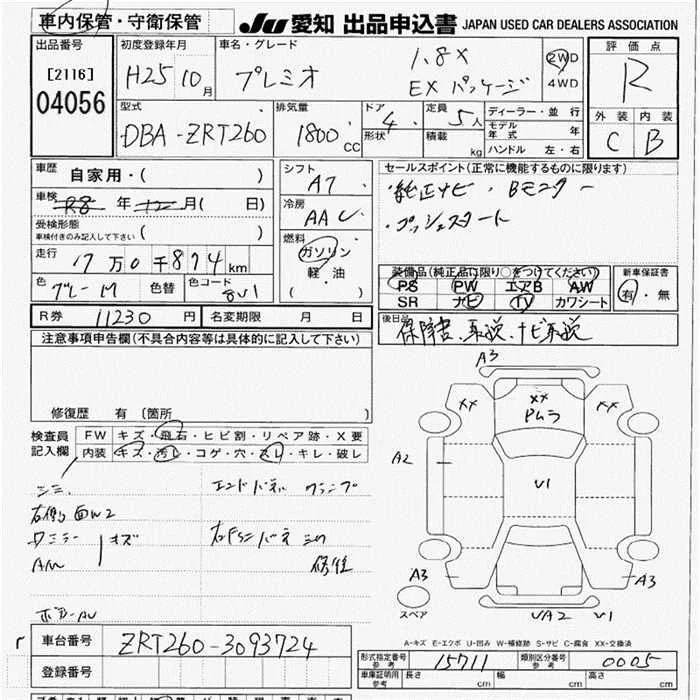 車内保管・守衛保管 JU 愛知 出品申込書 JAPAN USED CAR DEALERS ASSOCIATION
出品番号 初度登録年月 車名・グレード 評価点
[2116] H25 10月 プレミオ 1.8X 2WD R
04056 EX パッケージ 4WD
型式 排気量 ドア 4 定員 5人 ディーラー・並行 外装 内装
DBA-ZRT260 1800cc 形状 積載 kg モデル年式 年 C B
ハンドル 左・右
車歴 自家用・( ) シフト AT セールスポイント(正常に機能するものに限ります)
車検 R8 年 12 月( 日) 冷房 AAC ・純正ナビ・Bモニター
受検形態 ( ) ・プッシュスタート
車検付きのみ記入して下さい 燃料 ガソリン
走行 17万0千874km 軽・油 装備品(純正品に限り○をつけてください) 新車保証書
色 グレーM 色替 色コード 8V1 ( ) PS PW エアB AW 有・無
SR ナビ TV カワシート
R券 11230円 名変期限 月 日 後日品
保障書、車説、ナビ車説
注意事項申告欄(不具合内容等は具体的に記入して下さい) A3
XX XX XX
Pムラ
修復歴 有 〔箇所 〕
検査員 FW キズ・飛石・ヒビ割・リペア跡・X要
記入欄 内装 キズ・汚レ・コゲ・穴・スレ・キレ・破レ A2
V1
エンドパネル クランプ
右側 面W2
キズ
AW 修理
A3 A3
スペア VA2 V1
ボデーAU
A-キズ E-エクボ U-凹み W-補修跡 S-サビ C-腐食 XX-交換済
車台番号 ZRT260-3093724
登録番号 形式指定番号 参考 15711 類別区分番号 参考 0005
車庫証明用 参考 長さ 幅 高さ